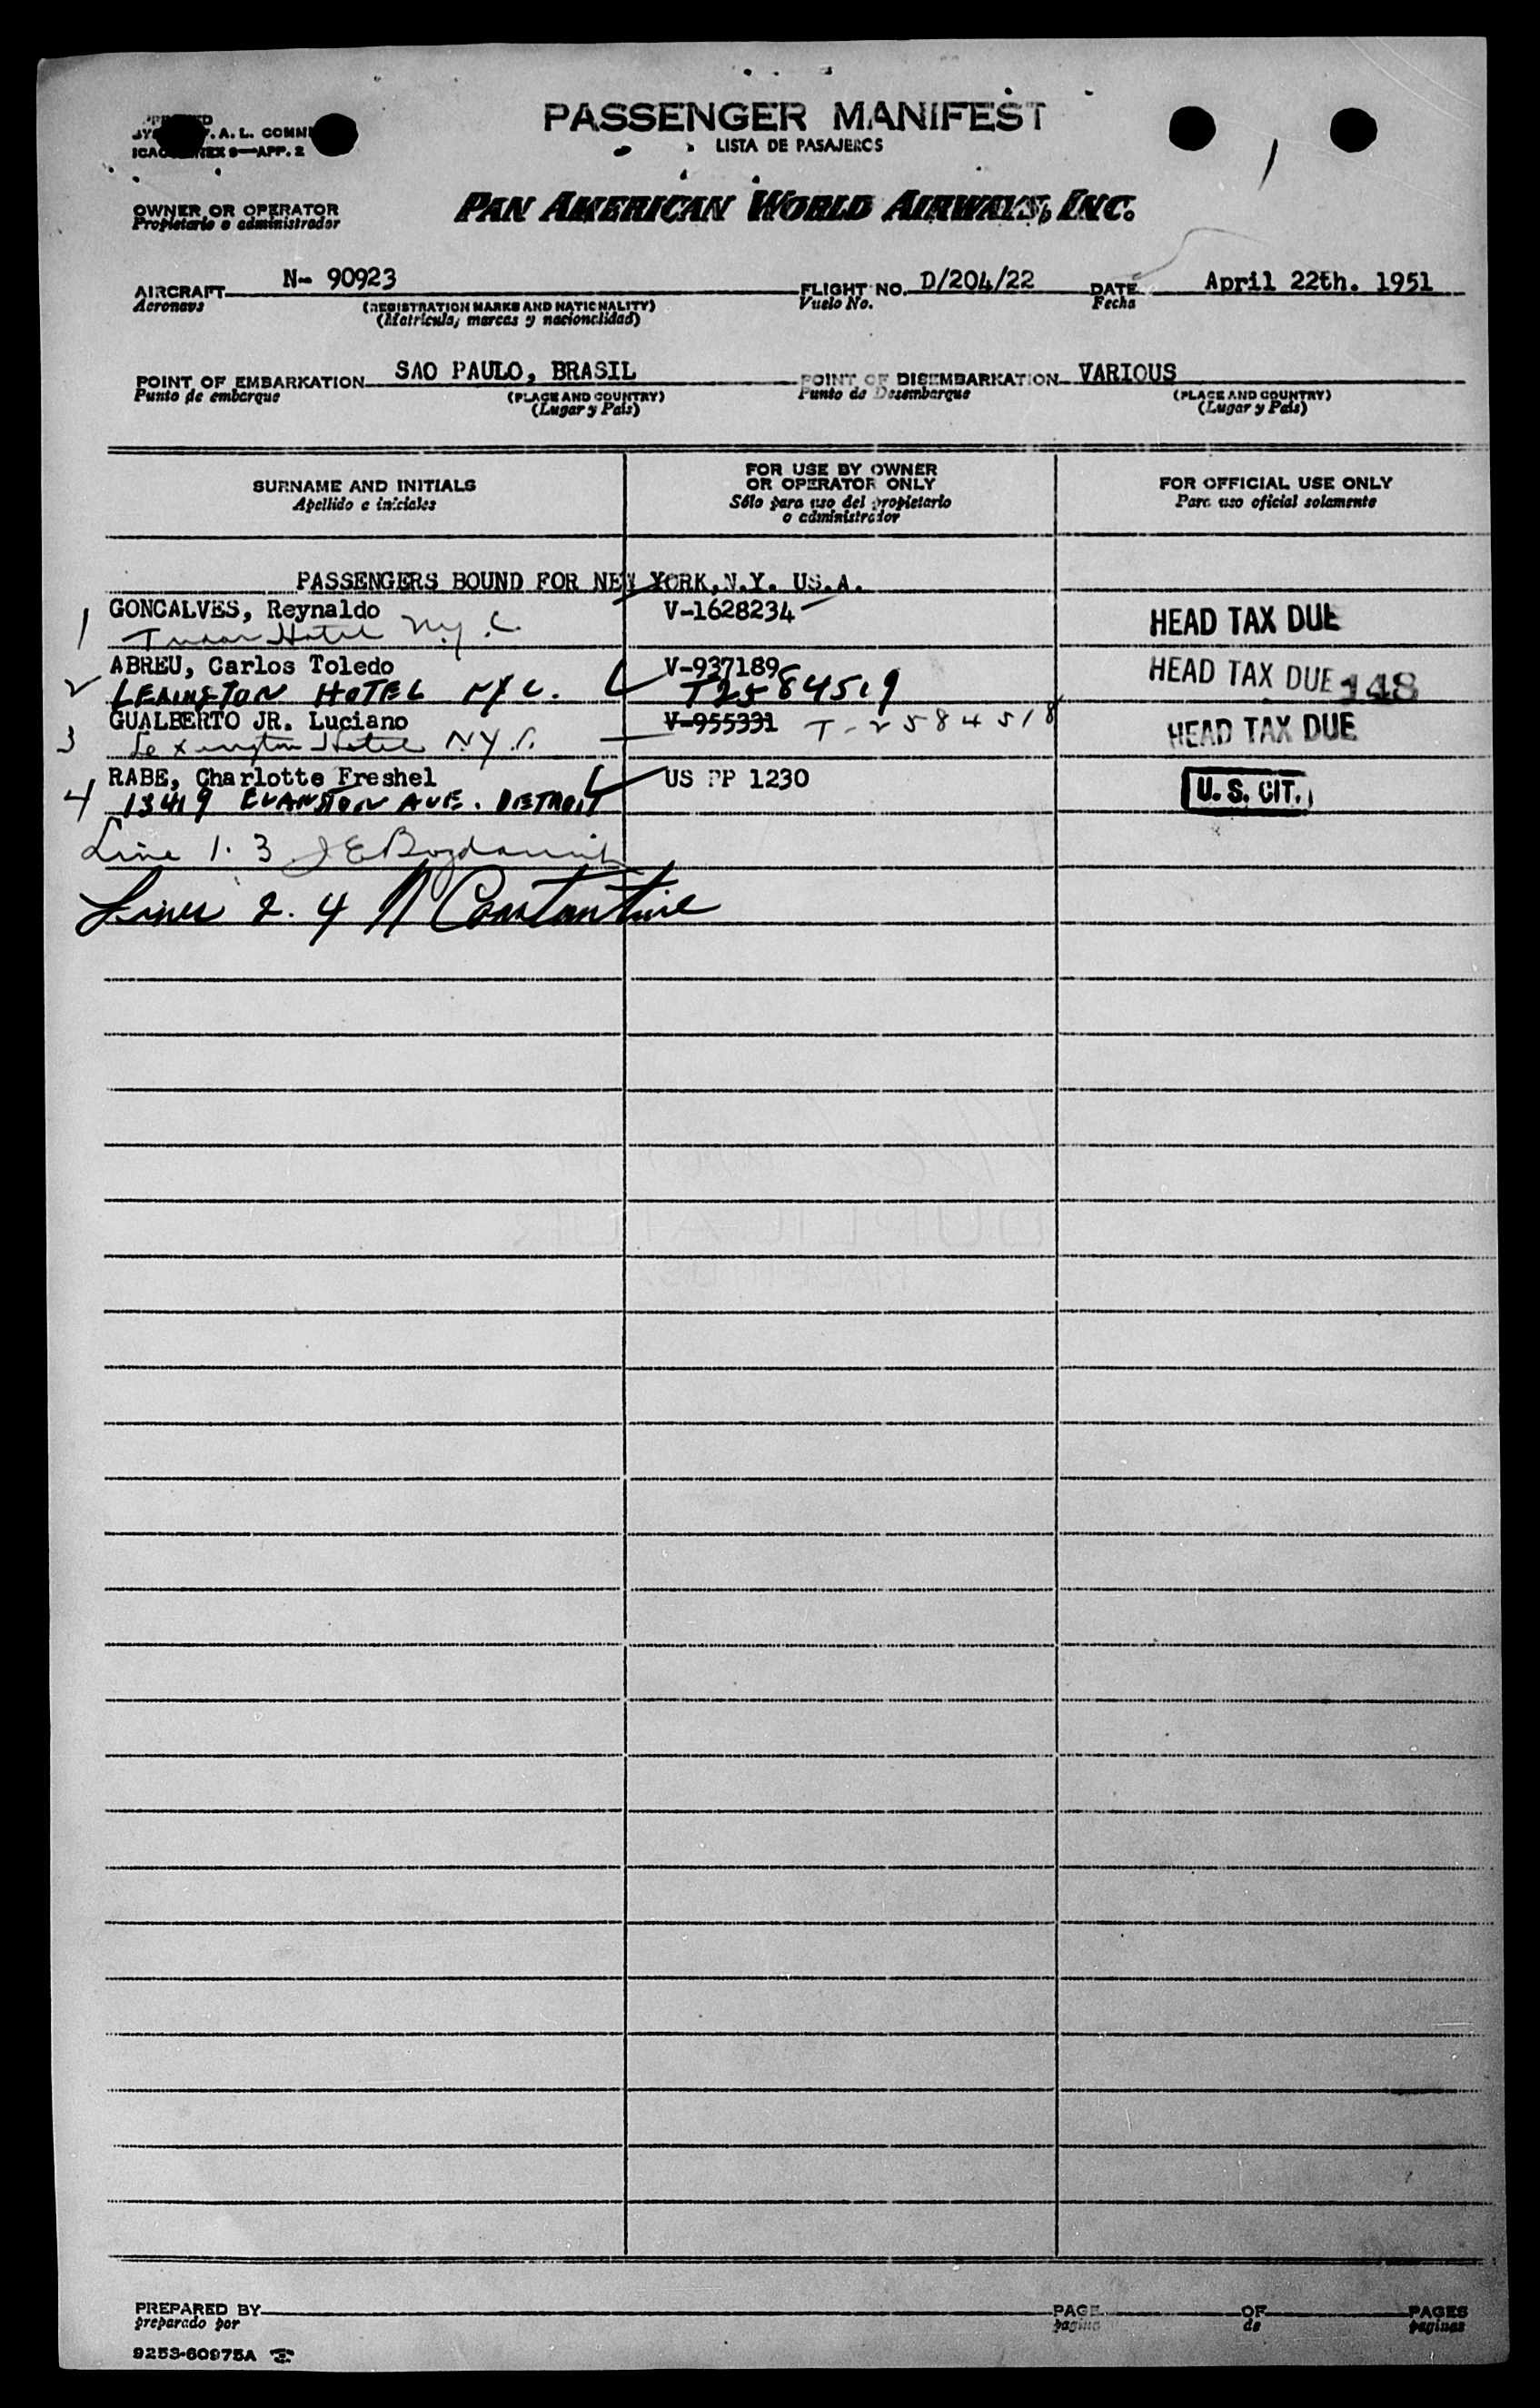 V.A.L. COMMI
ICAO ANNEX 9—APP. 2
PASSENGER MANIFEST
LISTA DE PASAJEROS
1
OWNER OR OPERATOR
Propietario o administrador
PAN AMERICAN WORLD AIRWAYS, INC.
AIRCRAFT N- 90923 FLIGHT NO. D/204/22 DATE April 22th. 1951
Aeronave (REGISTRATION MARKS AND NATIONALITY) Vuelo No. Fecha
(Matrícula, marcas y nacionalidad)
POINT OF EMBARKATION SAO PAULO, BRASIL POINT OF DISEMBARKATION VARIOUS
Punto de embarque (PLACE AND COUNTRY) Punto de Desembarque (PLACE AND COUNTRY)
(Lugar y País) (Lugar y País)
SURNAME AND INITIALS FOR USE BY OWNER OR OPERATOR ONLY FOR OFFICIAL USE ONLY
Apellido e iniciales Sólo para uso del propietario o administrador Para uso oficial solamente
PASSENGERS BOUND FOR NEW YORK,N.Y. US.A.
1 GONCALVES, Reynaldo V-1628234 HEAD TAX DUE
Tudor Hotel N.Y.C.
2 ABREU, Carlos Toledo V-937189 HEAD TAX DUE 148
LEXINGTON HOTEL NYC. T2584519
3 GUALBERTO JR. Luciano V-955331 T-2584518 HEAD TAX DUE
Lexington Hotel NYC.
4 RABE, Charlotte Freshel US PP 1230 U.S. CIT.
13419 EVANSTON AVE. DETROIT
Line 1. 3
Lines 2. 4 N Constantine
PREPARED BY PAGE OF PAGES
preparado por pagina de paginas
9253-60975A